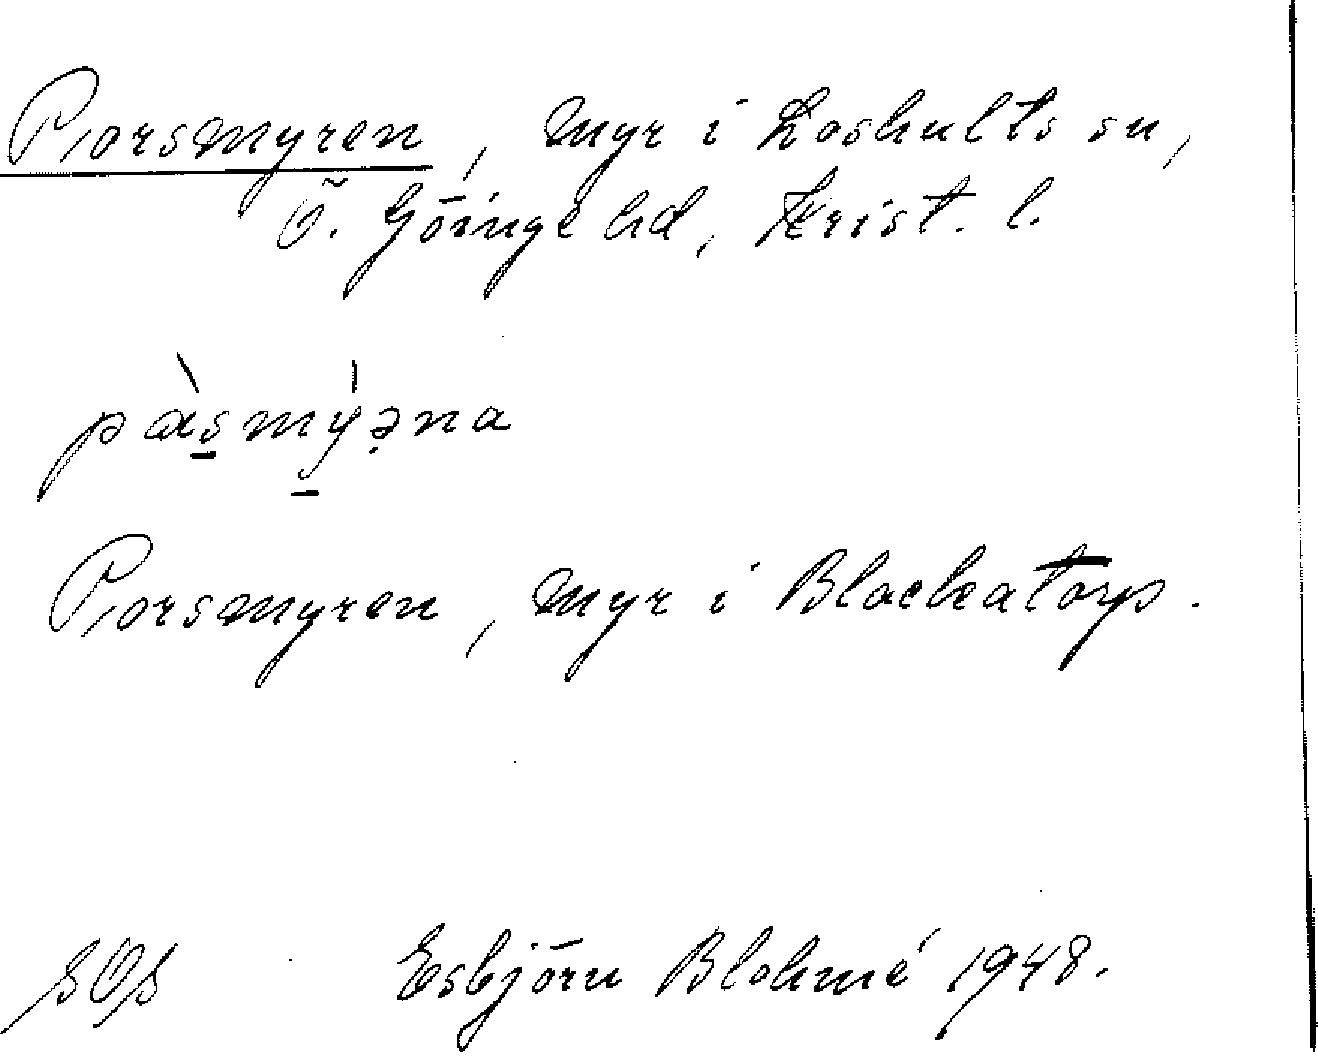 Porsmyren, myr i Loshults sn,
Ö. Göinge hd, Krist. l.
pàsmýəna
Porsmyren, myr i Blackatorp.
SOS Esbjörn Blohmé 1948.